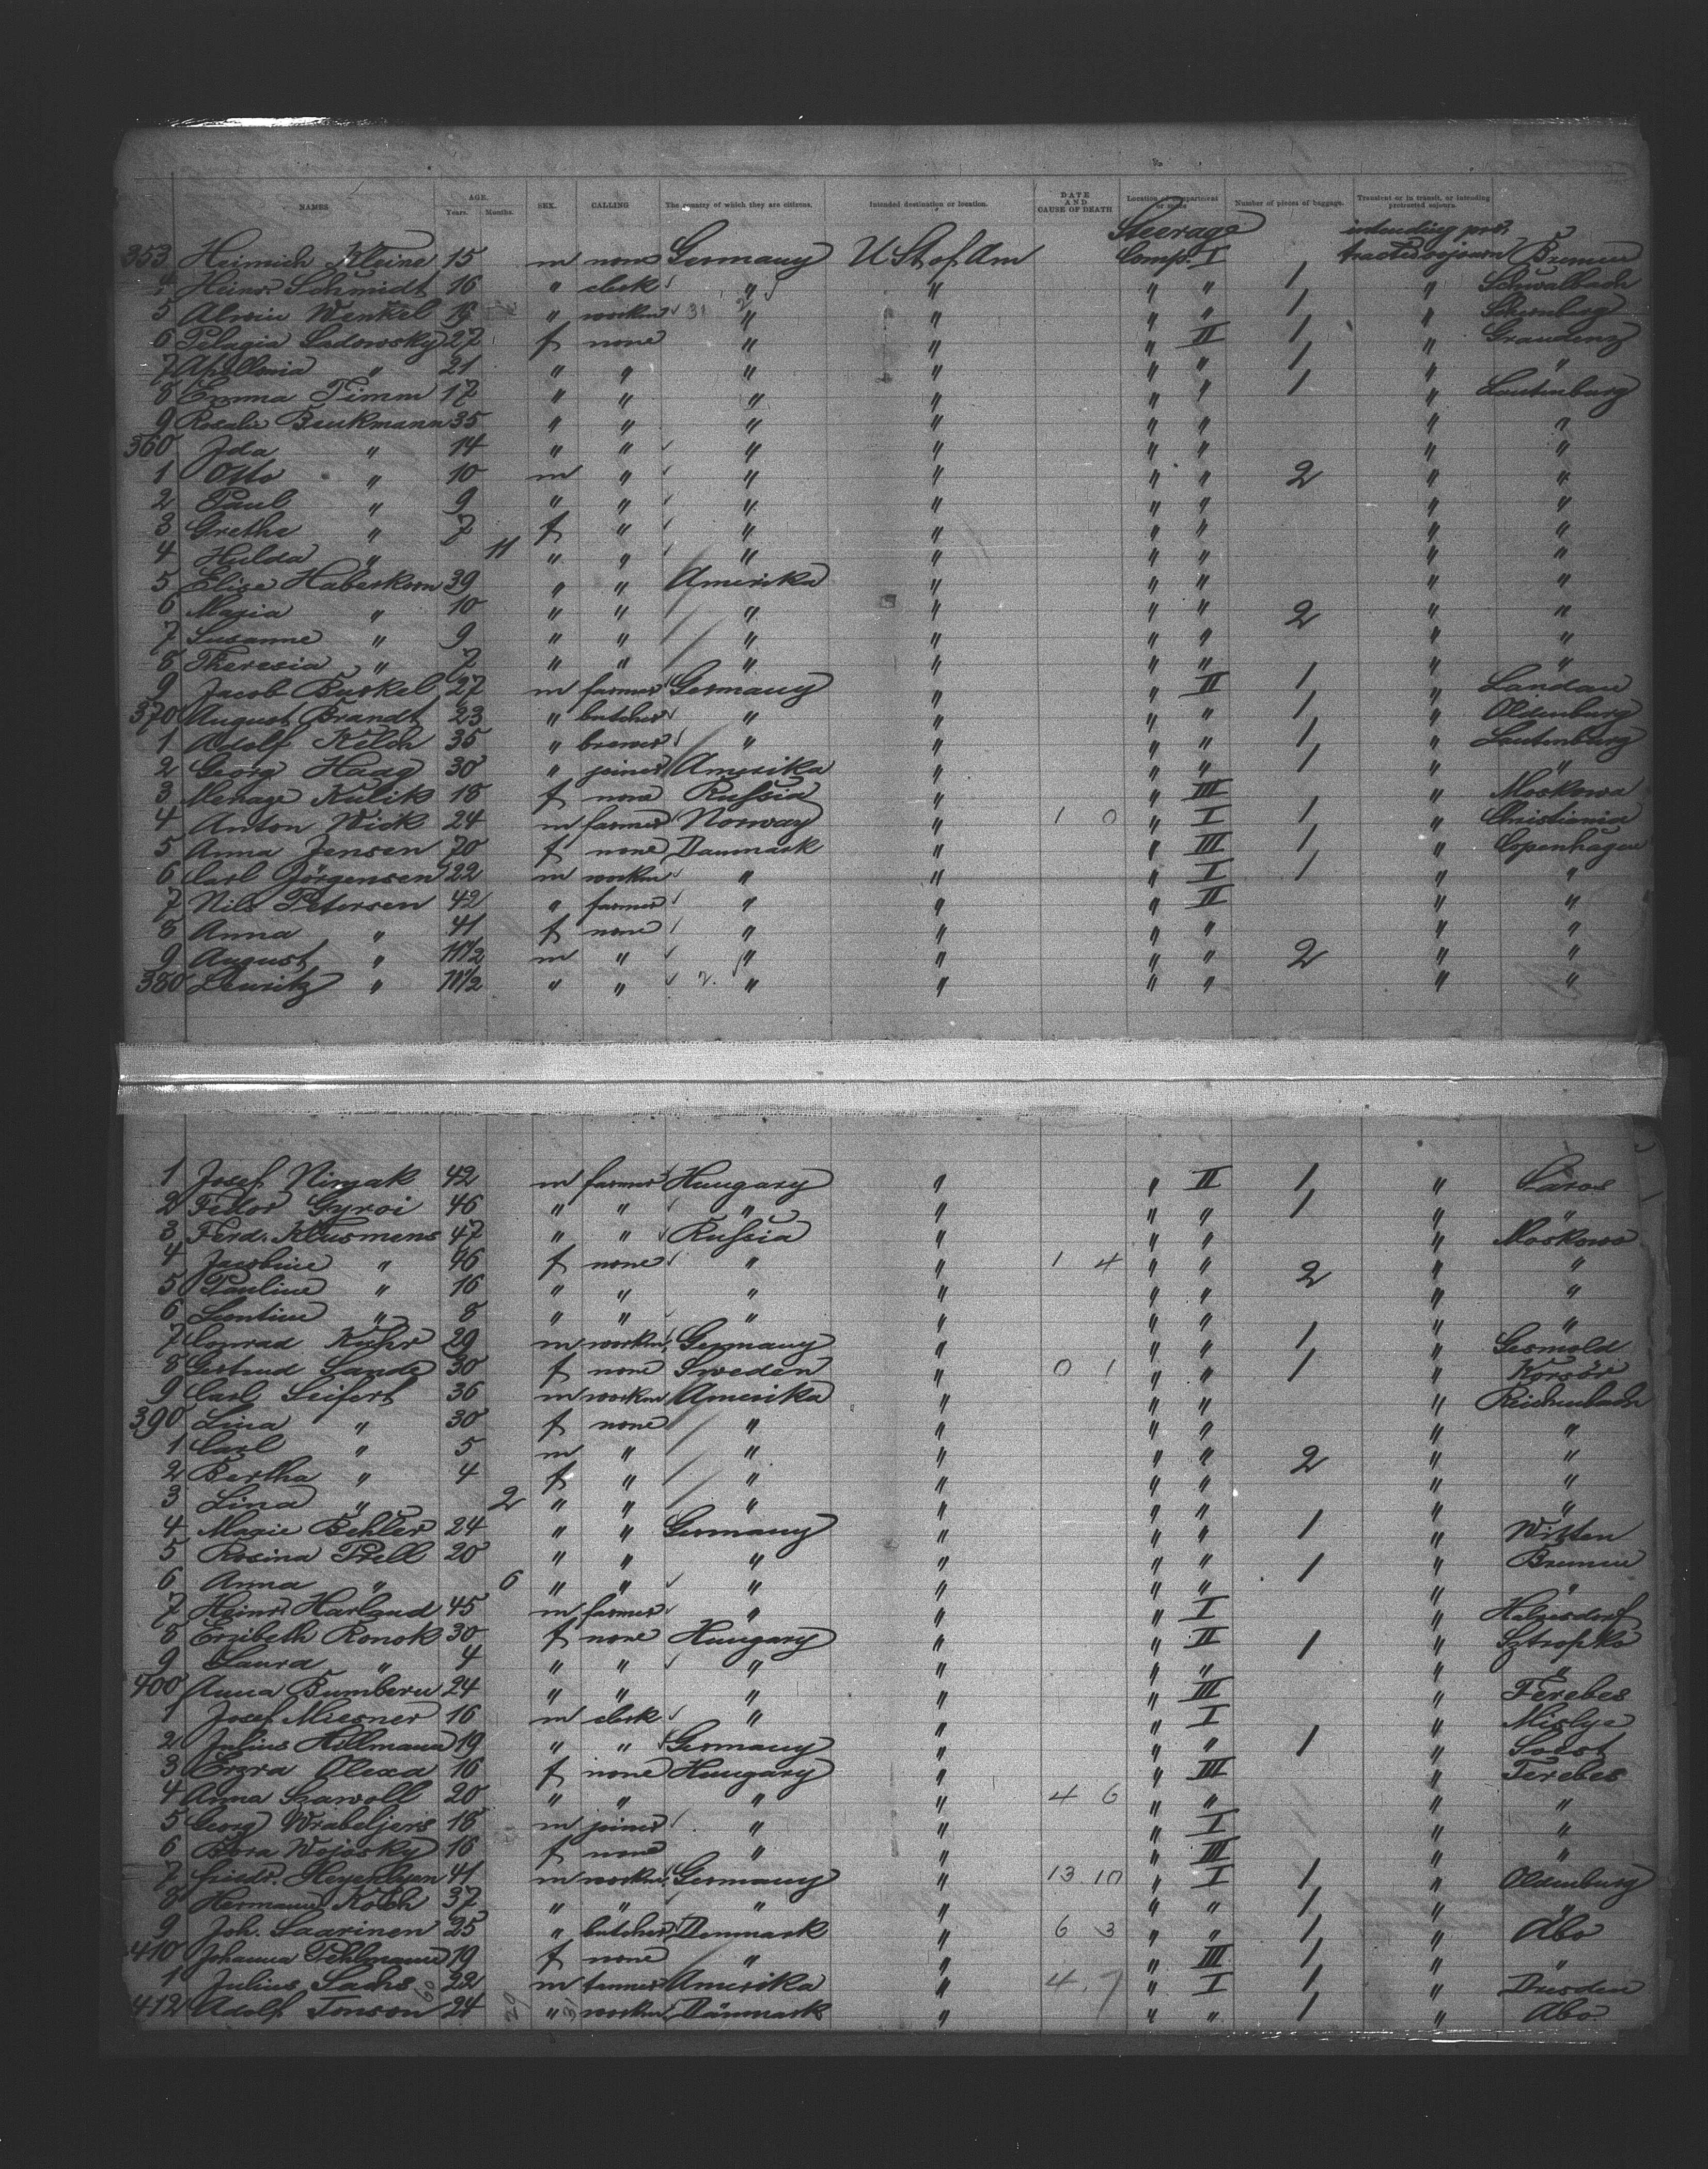 NAMES AGE. Years. Months. SEX. CALLING The country of which they are citizens. Intended destination or location. DATE AND CAUSE OF DEATH Location of compartment or space Number of pieces of baggage. Transient or in transit, or intending protracted sojourn.
Steerage intending pro-
353 Heinrich Kleine 15 m none Germany U St of Am Comp. I tracted sojourn Bremen
4 Heinr. Schmidt 16 " clerk " " " " 1 " Schwalbach
5 Alwin Wenkel 19 " workm " " " " 1 "
6 Pelagia Sadowsky 27 f none " " " II 1 " Graudenz
7 Apollonia " 21 " " " " " " 1 " "
8 Emma Timm 17 " " " " " " 1 " Lautenburg
9 Rosalie Beukmann 35 " " " " " " " "
360 Ida " 14 " " " " " " " "
1 Otto " 10 m " " " " " 2 " "
2 Paul " 9 " " " " " " " "
3 Grethe " 7 f " " " " " " "
4 Hulda " 11 " " " " " " " "
5 Elise Haberkorn 39 " " Amerika " " " " "
6 Maria " 10 " " " " " " 2 " "
7 Susanne " 9 " " " " " " " "
8 Theresia " 7 " " " " " " " "
9 Jacob Burkel 27 m farmer Germany " " II 1 " Landau
370 August Brandt 23 " butcher " " " " 1 " Oldenburg
1 Adolf Kelch 35 " brewer " " " " 1 " Lautenburg
2 Georg Haag 30 " joiner Amerika " " " 1 " "
3 Menage Kulik 18 f none Russia " " III " Moskowa
4 Anton Wick 24 m farmer Norway " 1 0 " I 1 " Christiania
5 Anna Jensen 20 f none Danmark " " III 1 " Copenhagen
6 Carl Jörgensen 22 m workm " " " I 1 " "
7 Nils Petersen 42 " farmer " " " II " "
8 Anna " 41 f none " " " " " "
9 August " 11 1/2 m " " " " " 2 " "
380 Lauritz " 11 1/2 " " " " " " " "
1 Josef Nirjak 42 m farmer Hungary " " II 1 " Saros
2 Fedor Gyroi 46 " " " " " " 1 " "
3 Ferd. Klusmens 47 " " Russia " " " " Moskowa
4 Jacobine " 46 f none " " 1 4 " " 2 " "
5 Pauline " 16 " " " " " " " "
6 Leontine " 8 " " " " " " " "
7 Conrad Kuhr 29 m workm Germany " " " 1 " Gesmold
8 Gertrud Sande 30 f none Sweden " 0 1 " " 1 " Korsör
9 Carl Seifert 36 m workm Amerika " " " " Reichenbach
390 Lina " 30 f none " " " " " "
1 Carl " 5 m " " " " " 2 " "
2 Bertha " 4 f " " " " " " "
3 Lina " 2 " " " " " " " "
4 Marie Behler 24 " " Germany " " " 1 " Witten
5 Rosina Prell 20 " " " " " " 1 " Bremen
6 Anna " 6 " " " " " " " "
7 Heinr. Harland 45 m farmer " " " I "
8 Erzibeth Ronok 30 f none Hungary " " II 1 " Sztropko
9 Laura " 4 " " " " " " " "
400 Anna Bumberu 24 " " " " " III " Terebes
1 Josef Miesner 16 m clerk " " " I " Mislye
2 Julius Hillmann 19 " " Germany " " " 1 " Soest
3 Erzra Olexa 16 f none Hungary " " III " Terebes
4 Anna Szawoll 20 " " " " 4 6 " " " "
5 Georg Wrabeljeris 16 m joiner " " " I " "
6 Bora Wojosky 16 f none " " " III " "
7 Friedr. 41 m workm Germany " 13 10 " I 1 " Oldenburg
8 Hermann Koch 37 " " " " " " 1 " "
9 Joh. Saarinen 25 " butcher Denmark " 6 3 " " 1 " Åbo
410 Johanna Pehlmann 19 f none " " " III 1 " "
1 Julius Sachs 22 m tanner Amerika " 4 7 " I 1 " Dresden
412 Adolf Jonson 24 " workm Dänmark " " " 1 " Åbo